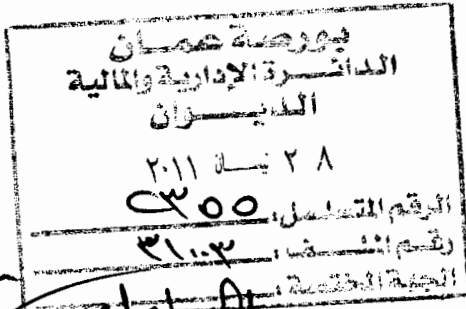 بورصة عمان
الدائرة الإدارية والمالية
الديوان
٢٨ نيسان ٢٠١١
الرقم المتسلسل: ٢٣٥٥
رقم الملف: ٣١٠٠٣
الجهة المختصة: